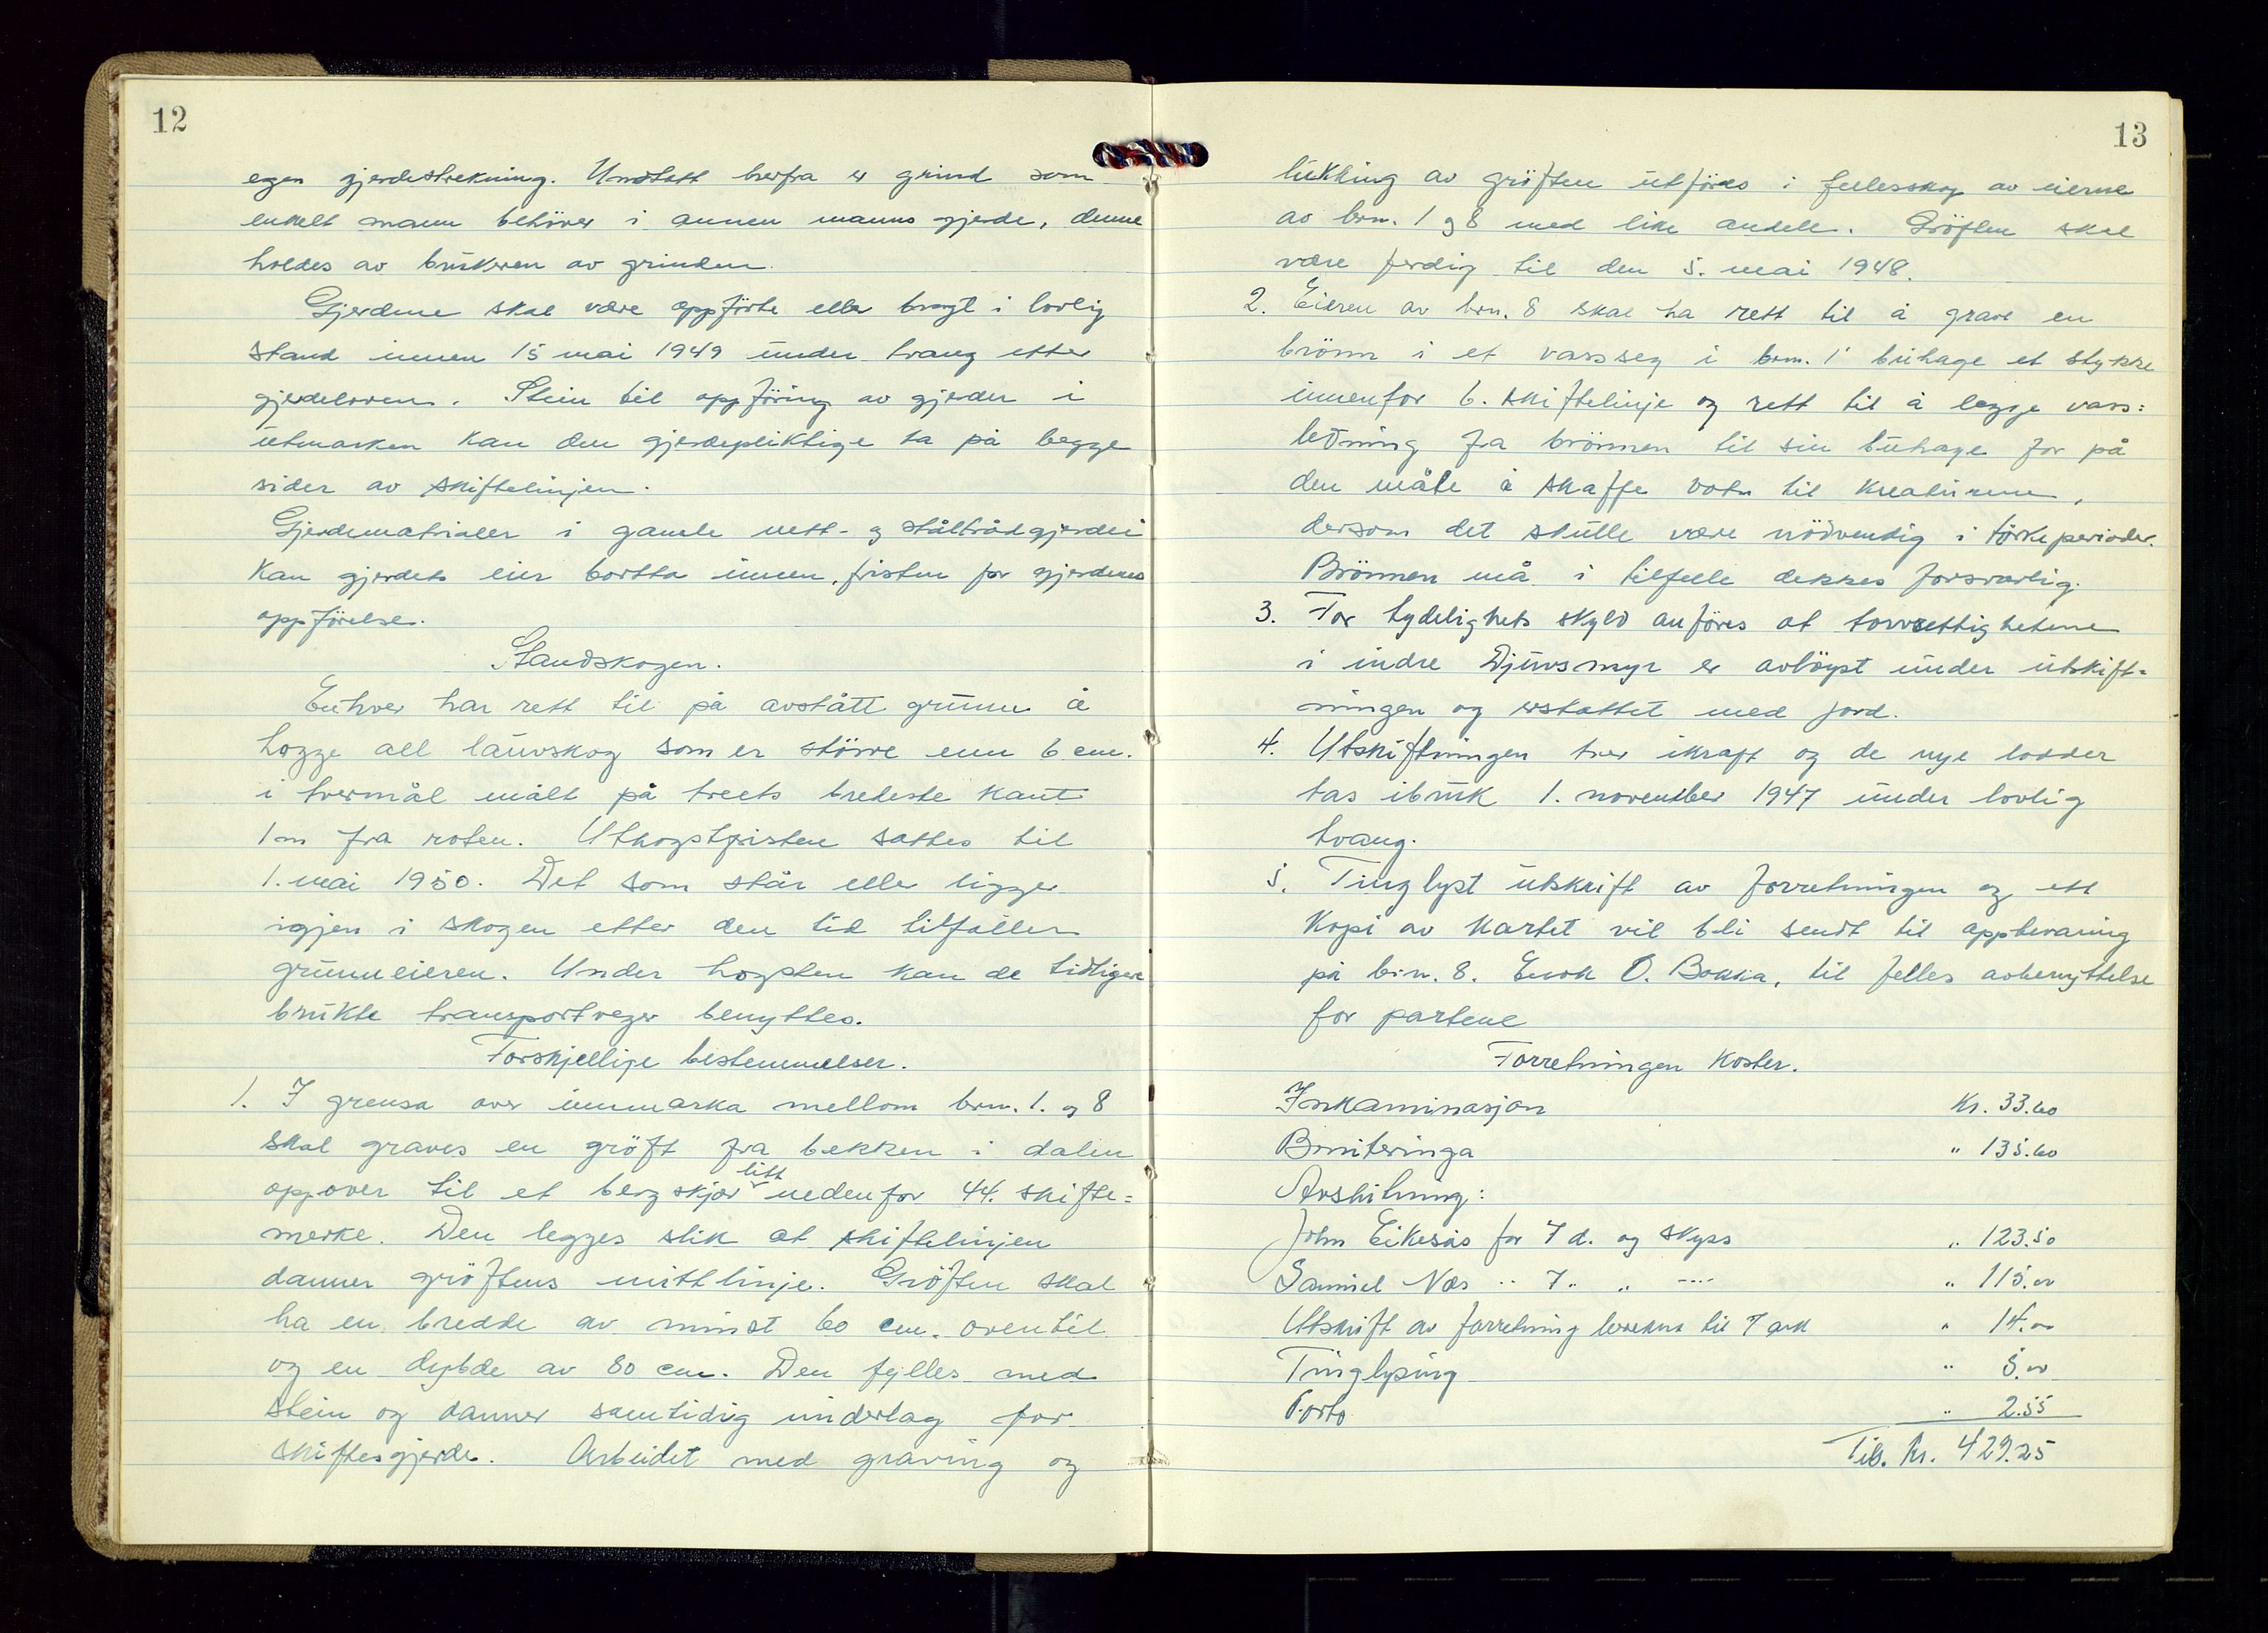 12
egen gjerdestrekning. Unntatt herfra er grind som
enkelt mann behöver i annen manns gjerde, denne
holdes av brukeren av grinden.
Gjerdene skal være oppförte eller bragt i lovlig
stand innen 15 mai 1949 under tvang etter
gjerdeloven. Stein til oppföring av gjerder i
utmarken kan den gjerdepliktige ta på begge
sider av skiftelinjen.
Gjerdematrialer i gamle nett- og ståltrådgjerder
kan gjerdets eier bortta innen fristen for gjerdenes
oppförelse.
Standskogen.
Enhver har rett til på avstått grunn å
hogge all lauvskog som er större enn 6 cm.
i tvermål målt på treets bredeste kant
1m fra roten. Uthogstfristen settes til
1. mai 1950. Det som står eller ligger
igjen i skogen etter den tid tilfaller
grunneieren. Under hogsten kan de tidligere
brukte transportveger benyttes.
Forskjellige bestemmelser.
1. I grensa over innmarka mellom brn. 1. og 8
skal graves en gröft fra bekken i dalen
oppover til et bergskjær litt nedenfor 44. skifte=
merke. Den legges slik at skiftelinjen
danner gröftens mittlinje. Gröften skal
ha en bredde av minst 60 cm. oventil
og en dybde av 80 cm. Den fylles med
stein og danner samtidig underlag for
skiftesgjerde. Arbeidet med graving og
13
lukking av gröften utföres i fellesskap av eierne
av brn. 1 og 8 med like andele. Gröften skal
være ferdig til den 5. mai 1948.
2. Eieren av brn. 8 skal ha rett til å grave en
brönn i et vasseg i brn. 1' buhage et stykke
innenfor 6. skiftelinje og rett til å legge vass=
ledning fra brönnen til sin buhage for på
den måte å skaffe vatn til kreaturene,
dersom det skulle være nödvendig i törkeperioder.
Brönnen må i tilfelle dekkes forsvarlig.
3. For tydelighets skyld anföres at torvrettighetene
i indre Djuvsmyr er avlöyst under utskift=
ningen og erstattet med jord.
4. Utskiftningen trer ikraft og de nye lodder
tas ibruk 1. november 1947 under lovlig
tvang.
5. Tinglyst utskrift av forretningen og ett
kopi av kartet vil bli sendt til oppbevaring
på brn. 8. Enok O. Bokka, til felles avbenyttelse
for partene
Forretningen koster.
Inkaminasjon Kr. 33.60
Boniteringa " 135.60
Avskilning:
John Eikesås for 7 d. og skyss " 123.50
Samuel Nes " 7 " " --- " 115.00
Utskrift av forretning beregna til 7 ark " 14.00
Tinglysing " 5.00
Porto " 2.55
Tils. kr. 429.25